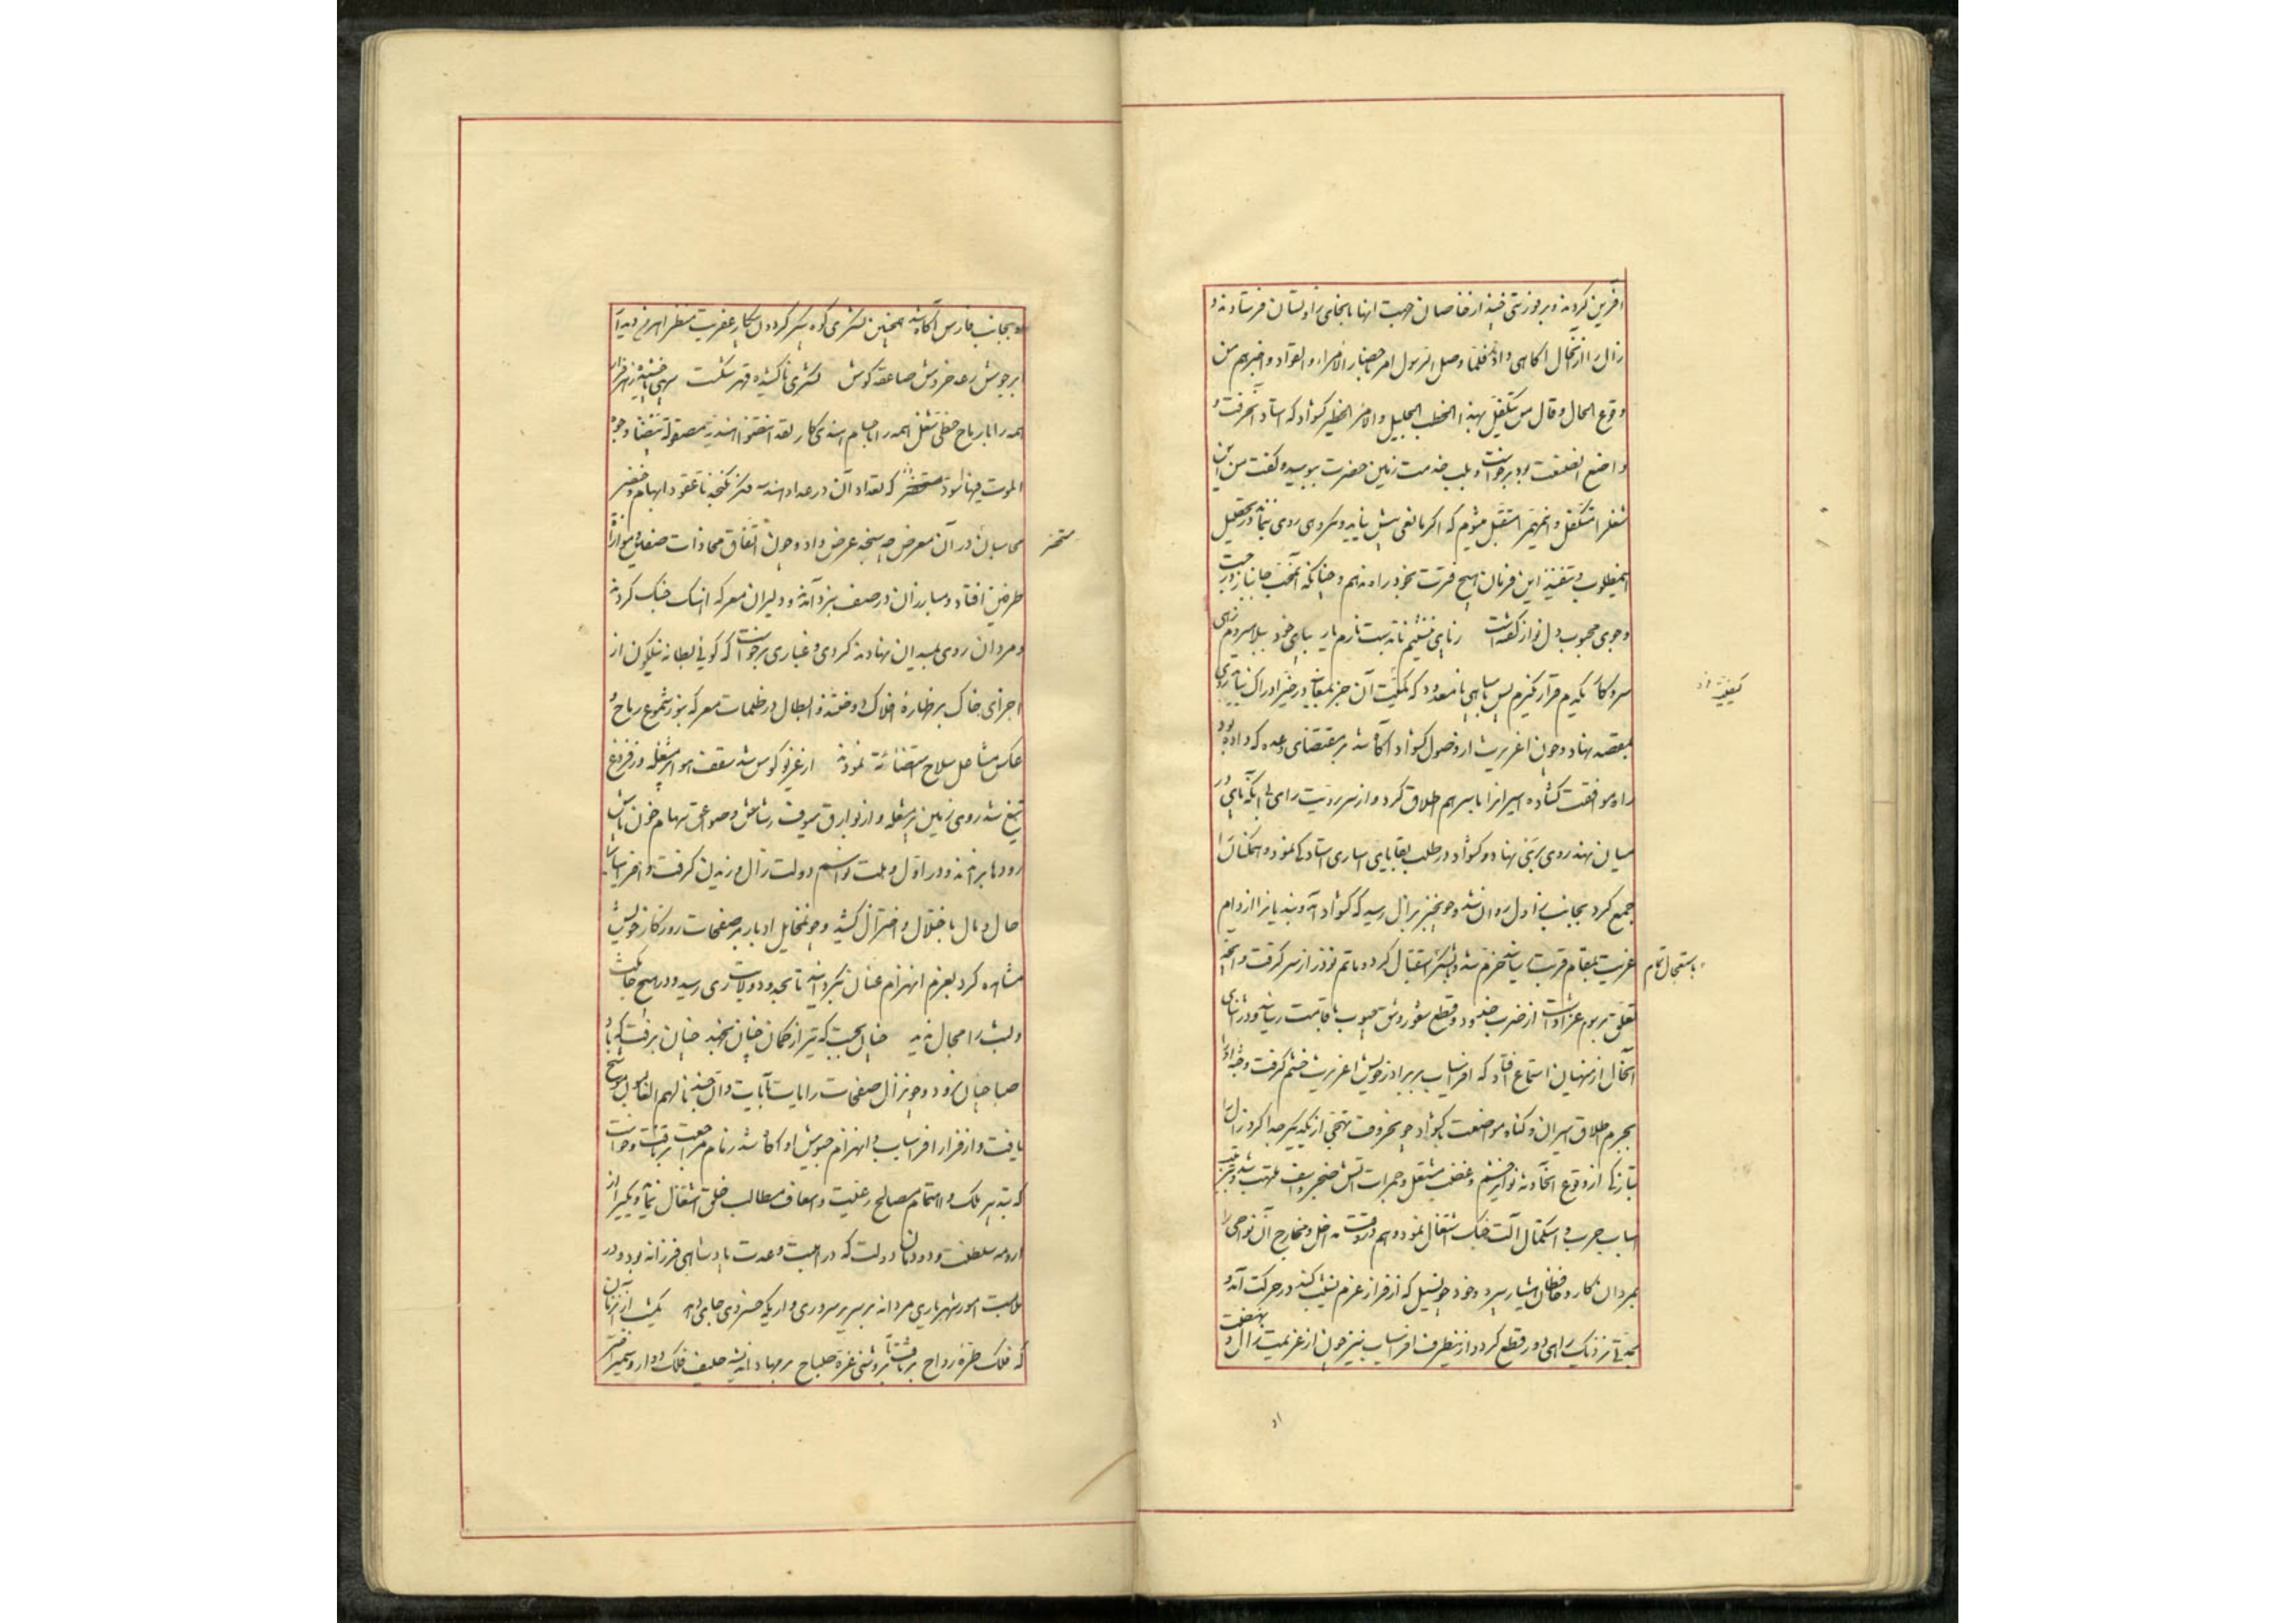 آفرین کردند و بر فور تنی چند از خاصان جهت انها بجانب زاولستان فرستادند و
زال را از آنحال آگاهی دادند فلما وصل الرسول امر باحضار الامراء و القواد و اخبرهم من
وقوع الحال و قال من یتکفل بهذا الخطب الجلیل و الامر الخطیر کشواد که استاد آنحرفت و
واضع آنصنعت بود برخواست و بلب خدمت زمین حضرت ببوسید و گفت من این
شغل را متکفل و آنمهم را متقبل میشوم که اگر مانعی پیش نیاید و مکروهی روی ننماید در تحصیل
آنمطلوب و تنفیذ این فرمان هیچ فترت بخود راه ندهم و چنانکه آنمحب جانباز در جست
و جوی محبوب دلنواز گفته است ز پای ننشینم تا بدست نارم یار بپای خود ببلا میروم زهی
سر و کار یکدم قرار نگیرم پس با سپاهی نامعدود که کمیت آن جز بمعاینه در حیز ادراک نیاید روی
کیفیت
بمقصد نهاد و چون اغریرث از وصول کشواد آگاه شد بر مقتضای وعده که داده بود
راه موافقت گشاده اسیرانرا باسرهم اطلاق کرد و از سر رویت رای بی آنکه پای در
میان نهد روی بری نهاد و کشواد در طلب بقایای اساری استاد کی نمود و همکنانرا
جمع کرد بجانب زاول روان شد و چون خبر بزال رسید که کشواد آمد و بندیانرا از دام
باستعجال تمام
غریت بمقام قربت رسانید خرم شد و بلشکر استقبال کرد و ماتم نوذر از سر گرفت و آنچه
تعلق بر سوم عزا داشت از ضرب خدود و قطع شعور و شق جیوب باقامت رسانید و در اثنای
آنحال از منهیان استماع افتاد که افراسیاب بر برادر خویش اغریرث خشم گرفت و جثه او را
بجرم اطلاق اسیران و گناه مواضعت با کشواد چون حروف تهجی از یکدیگر جدا کرد زال را
بتازگی از وقوع آنحادثه نوایر خشم و غضب مشتعل و جمرات آتش ضجر و اسف ملتهب شد و بترتیب
اسباب حرب و استکمال آلت جنگ اشتغال نمود و هم در وقت مداخل و مخارج آن نواحی را
بمردان کار و حافظان هشیار سپرد و خود چون سیل که از فراز عزم نشیب کند در حرکت آمد و
بمدتی نزدیک راهی دور قطع کرد و از ینطرف افراسیاب نیز چون از عزیمت زال و نهضت
او بجانب فارس آگاه شد همچنین لشکری کوه پیکر گردون سکار عفریت منظر اهرمن دیدار
ابر جوش رعد خروش صاعقه کوش لشکری ناکشیده قهر شکست سپهی ناچشیده زهر فرار
همه را با رباح خطی شغل همه را با حسام هندی کار لقد انتضوا هندیة مصقولة تنضنا وجوه
الموت فیها اسود مستحشر که تعداد آن در عداد هندسه فکر نگنجد تا عقود ابهام و خنصر
مستحضر
محاسبان در آن معرض چه سنجد عرض داد و چون اتفاق محاذات صفین و موازاة
طرفین افتاد و مبارزان در صف نبرد آمدند و دلیران معرکه آهنگ جنگ کردند
و مردان روی بمیدان نهادند گردی و غباری برخواست که گوئی بطانه نیلگون از
اجزای خاک بر ظهاره افلاک دوختند و ابطال در ظلمات معرکه بنور شموع رماح و
عکس مشاعل سلاح استضائة نمودند از غریو کوس شد سقف هوا پر مشغله وز فروغ
تیغ شد روی زمین پر شعله و از بوارق سیوف رشاش و صواعق سهام خون پاش
رودها براندند و در اول وهلت مراسم دولت زال وزیدن گرفت و افراسیاب را
حال و مال باختلال و اختزال کشید و چون مخایل ادبار بر صفحات روزگار خویش
مشاهده کرد بعزم انهزام عنان بگردانید تا بحدود ولایت ری رسید و در هیچ جا مکث
و لبث را مجال ندید چنان بجست که تیر از کمان چنان نجهد چنان برفت که باد
صبا چنان نرود و چون زال صفحات رایات بآیات و ان جندنا لهم الغالبون موشح
یافت و از فرار افراسیاب و انهزام جیوش او آگاه شد زمام مراجعت بر تافت و خواست
که تدبیر ملک و اهتمام مصالح رعیت و اسعاف مطالب خلق اشتغال نماید و یکی را از
ارومه سلطنت و دودمان دولت که در اهبت و عدت پادشاهی فرزانه بود و در
ملابست امور شهریاری مردانه بر سریر سروری و اریکه خسروی جای دهد یکشب از آن زمان
که فلک طره رواح بر تافت تا بروشنی غره صباح بر مهاد اندیشه حلیف فلک دوار و سمیر اختر